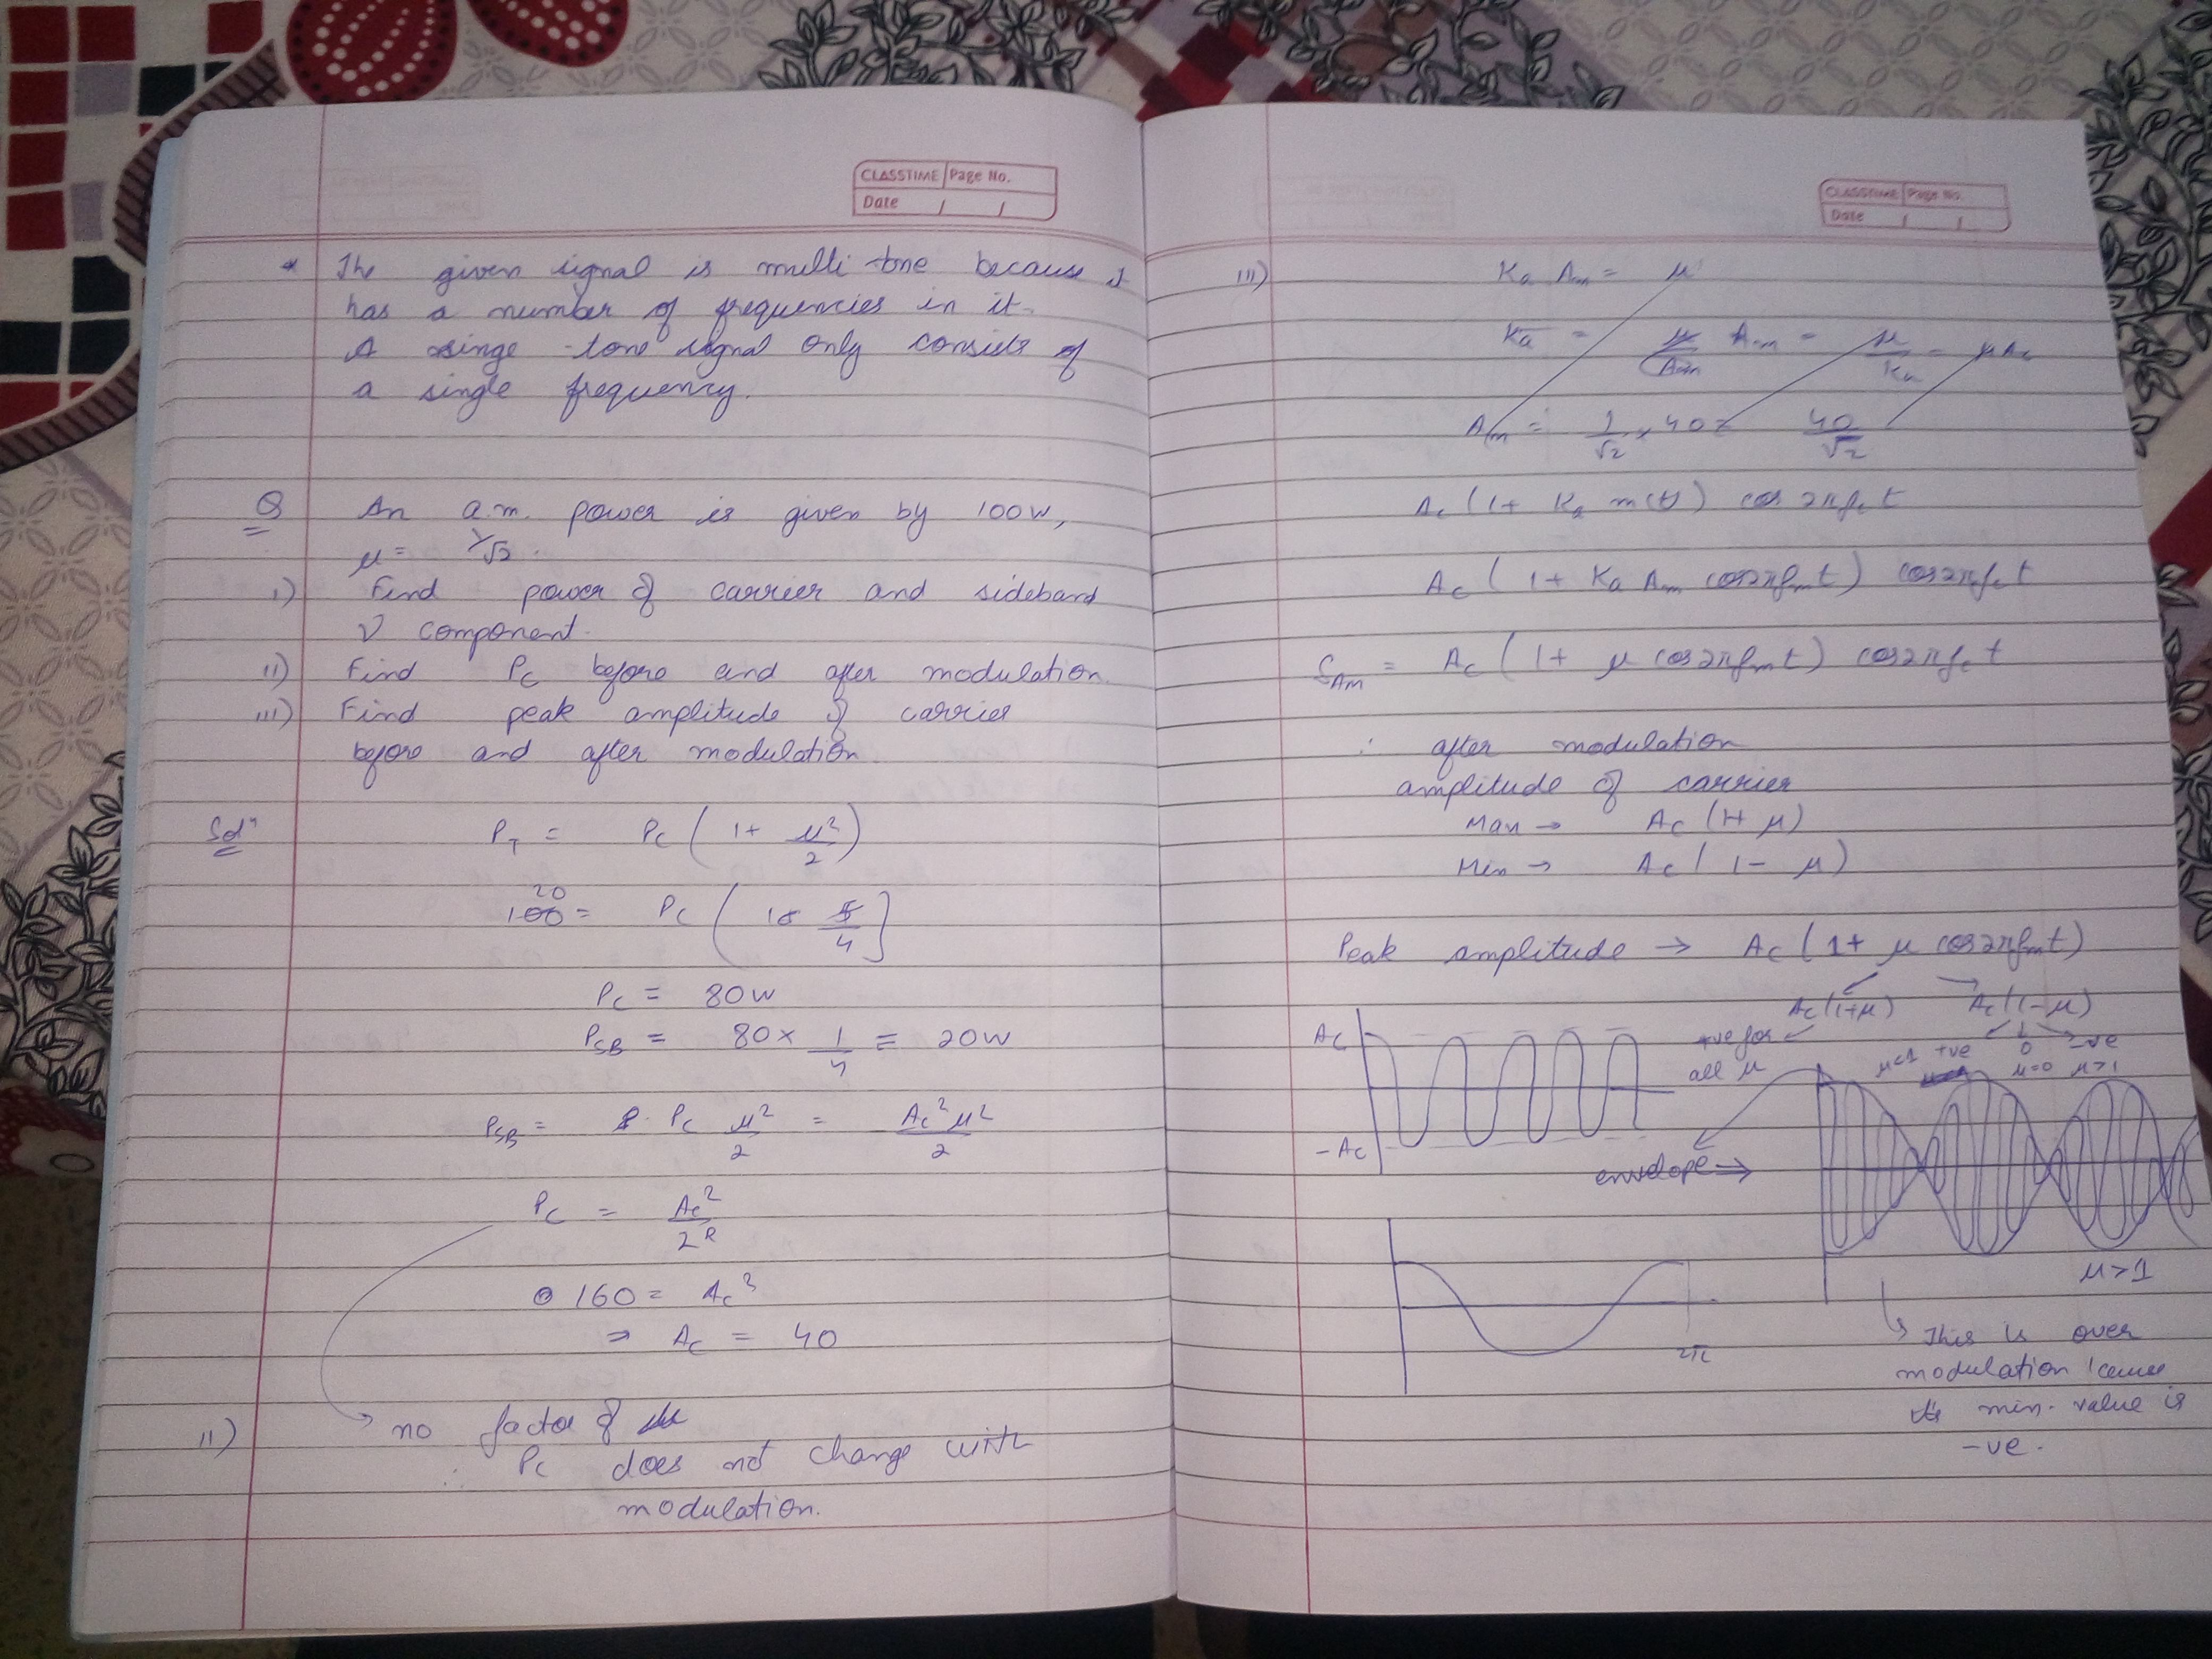 CLASSTIME Page No.
Date / /
* The given signal is multi tone because it
has a number of frequencies in it.
A singe tone signal only consists of
a single frequency.
Q An a.m. power is given by 100W,
μ = 1/√2.
i) Find power of carrier and sideband
component.
ii) Find Pc before and after modulation.
iii) Find peak amplitude of carrier
before and after modulation.
Solⁿ P_T = Pc ( 1 + μ²/2 )
20
100 = Pc ( 5/4 ]
Pc = 80W
P_SB = 80 × 1/4 = 20W
P_SB = Pc μ²/2 = Ac² μ²/2
Pc = Ac²/2R
160 = Ac²
⇒ Ac = 40
ii) → no factor of μ
∴ Pc does not change with
modulation.
CLASSTIME Page No.
Date / /
iii) Ka Am = μ
Ka = μ/Am Am = μ/Ka = μAc
Am = 1/√2 × 40 = 40/√2
Ac (1 + Ka m(t)) cos 2πfc t
Ac ( 1 + Ka Am cos2πfmt) cos2πfc t
S_AM = Ac ( 1 + μ cos2πfmt) cos2πfc t
∴ after modulation
amplitude of carrier
Max → Ac (1+ μ)
Min → Ac ( 1 - μ)
Peak amplitude → Ac (1 + μ cos2πfmt)
Ac(1+μ) Ac(1-μ)
Ac +ve for μ<1 +ve 0 -ve
all μ μ=0 μ>1
-Ac
envelope ⇒
μ>1
2π
↳ This is over
modulation 'cause
its min. value is
-ve.